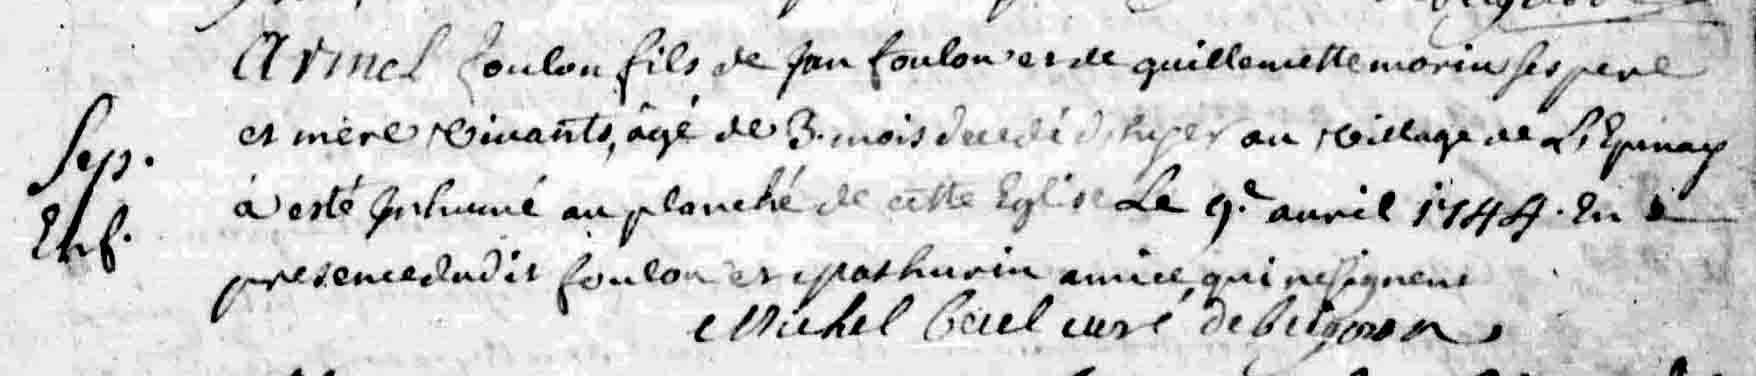 Armel foulon fils de jan foulon et de guillemette morin ses pere
et mere vivants, âgé de 3. mois decedé d'hyer au village de L'Epinay
Sep.
Enf.
à esté Inhumé au planché de cette Eglise Le 9.e avril 1744. En
presence dudit foulon et Mathurin amice qui ne signent
Michel curé de